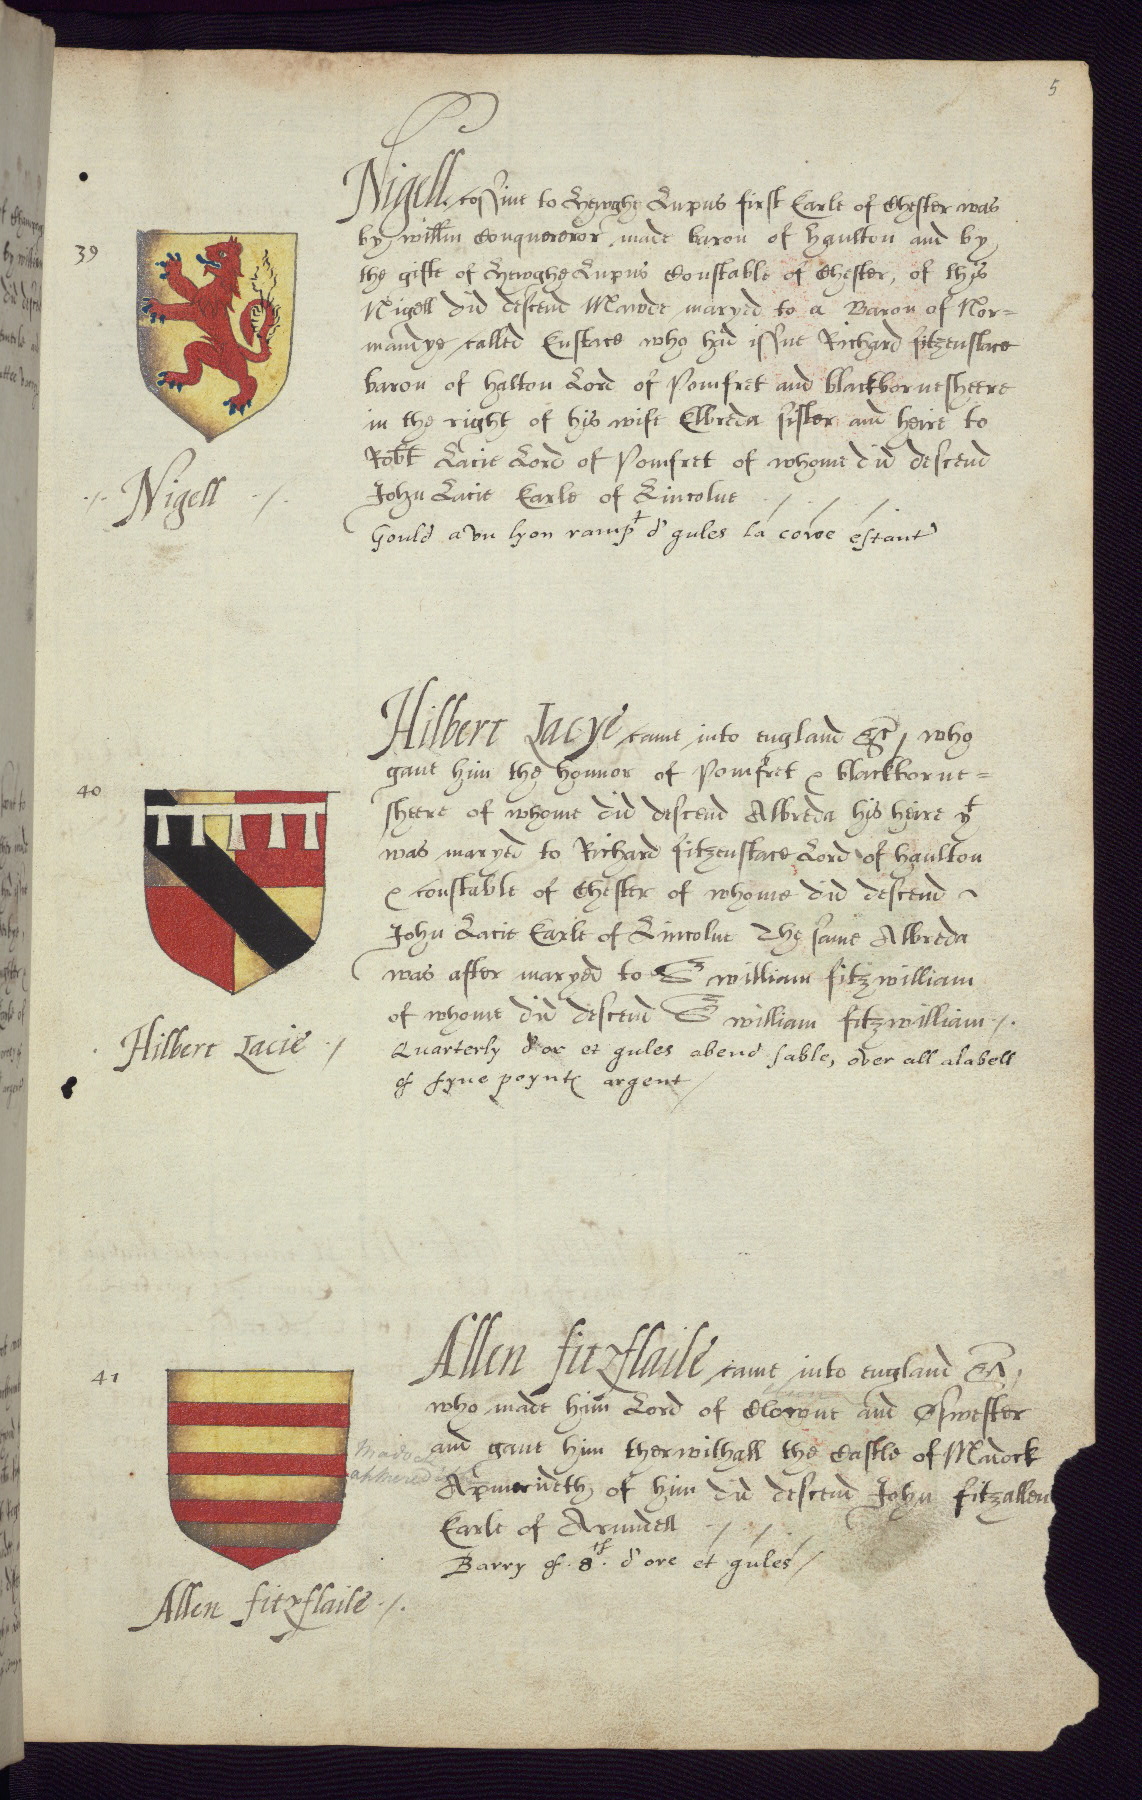 5
Nigell cossine to Hewghe Lupus first Earle of Chester was
39
by willm Conquereror made baron of haulton and by
the gifte of Hewghe Lupus Constable of Chester, of this
Nigell did descend Mawde maryed to a Baron of Nor=
mandye called Eustace who had issue Richard fitzeustace
baron of halton Lord of Pomfret and blackbornesheere
in the right of his wife Elbreda sister and heire to
Robt Lacie Lord of Pomfret of whome did descend
John Lacie Earle of Lincolne
Nigell
Gould a vn lyon rampt d' gules la cowe estant
Hilbert Lacye came into england &c, who
gaue him the honnor of Pomfret & blackborne=
40
sheere of whome did descend Albreda his heire yt
was maryed to Richard fitzeustace Lord of haulton
& constable of Chester of whome did descend
John Lacie Earle of Lincolne The same Albreda
was after maryed to Sr william fitzwilliam
of whome did descend Sr william fitzwilliam
Hilbert Lacie
Quarterly d'or et gules abend sable, over all alabell
of fyue poynts argent
Allen fitzflaile came into england &c,
41
who made him Lord of Clowne and Oswester
and gaue him therwithall the Castle of Madock
Madock
Apmerideth, of him did descend John fitzallen
apmered
Earle of Arundell
Barry of .8th. d'ore et gules
Allen fitzflaile